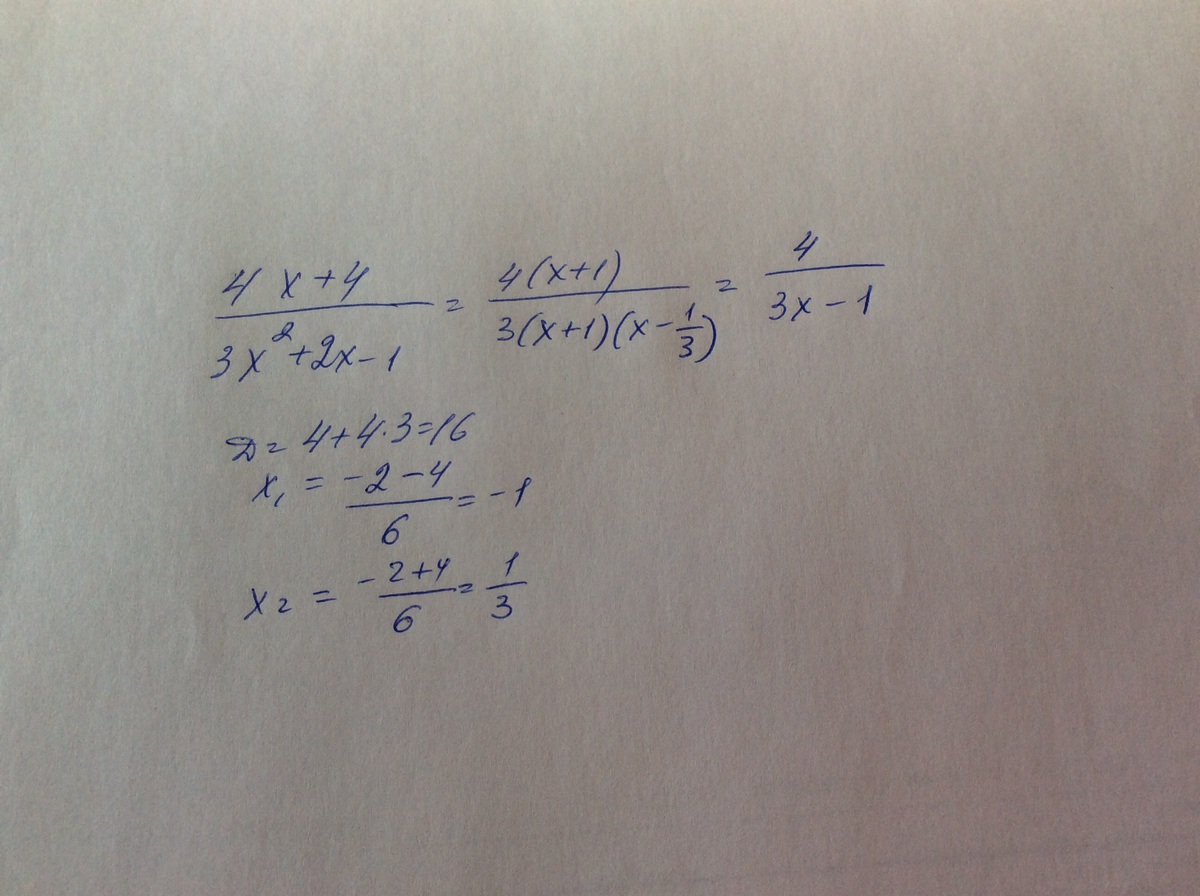 (4x+4)/(3x²+2x-1) = 4(x+1)/(3(x+1)(x-1/3)) = 4/(3x-1)
D = 4+4·3=16
x₁ = (-2-4)/6 = -1
x₂ = (-2+4)/6 = 1/3